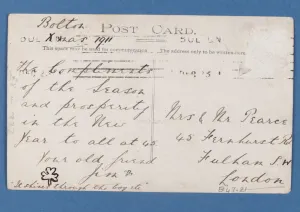 Bolton
POST CARD.
Xmas 1911
This space may be used for correspondence. The address only to be written here.
The Compliments
of the Season
and prosperity
in the New
Year to all at 45
your old friend
Jim
Mrs & Mr Pearce
45 Fernhurst Rd
Fulham S.W
London